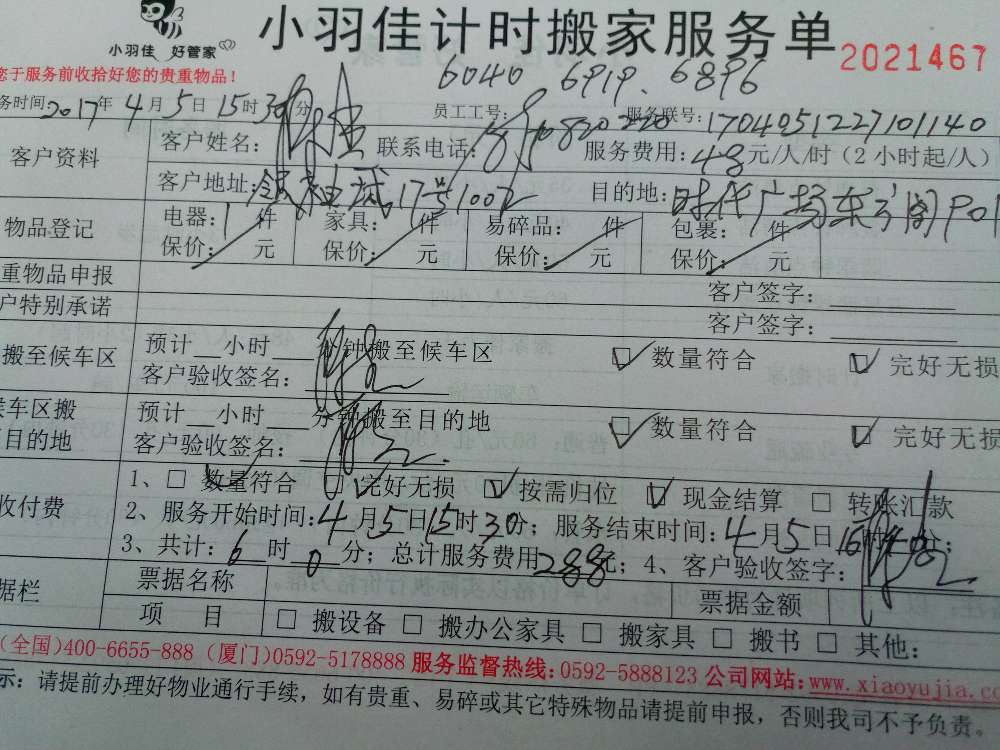 小羽佳 好管家
小羽佳计时搬家服务单
2021467
您于服务前收拾好您的贵重物品！
6040 6919 6896
务时间2017年4月5日15时30分 员工工号： 服务联号：1704051227101140
客户资料 客户姓名： 联系电话： 服务费用：48元/人/时（2小时起/人）
客户地址： 17号1002 目的地：时代广场东方阁
物品登记 电器：1件 家具： 件 易碎品： 件 包裹： 件
保价： 元 保价： 元 保价： 元 保价： 元
重物品申报 客户签字：
户特别承诺 客户签字：
搬至候车区 预计__小时___分钟搬至候车区 ☑数量符合 ☑完好无损
客户验收签名：
车区搬 预计__小时___分钟搬至目的地 ☑数量符合 ☑完好无损
目的地 客户验收签名：
收付费 1、□数量符合 ☑完好无损 ☑按需归位 ☑现金结算 □转账汇款
2、服务开始时间：4月5日15时30分；服务结束时间：4月5日16时40分；
3、共计：6时0分；总计服务费用288元；4、客户验收签字：
据栏 票据名称 票据金额
项 目 □搬设备 □搬办公家具 □搬家具 □搬书 □其他：
(全国)400-6655-888 (厦门)0592-5178888 服务监督热线：0592-5888123 公司网站：www.xiaoyujia.co
示：请提前办理好物业通行手续，如有贵重、易碎或其它特殊物品请提前申报，否则我司不予负责。